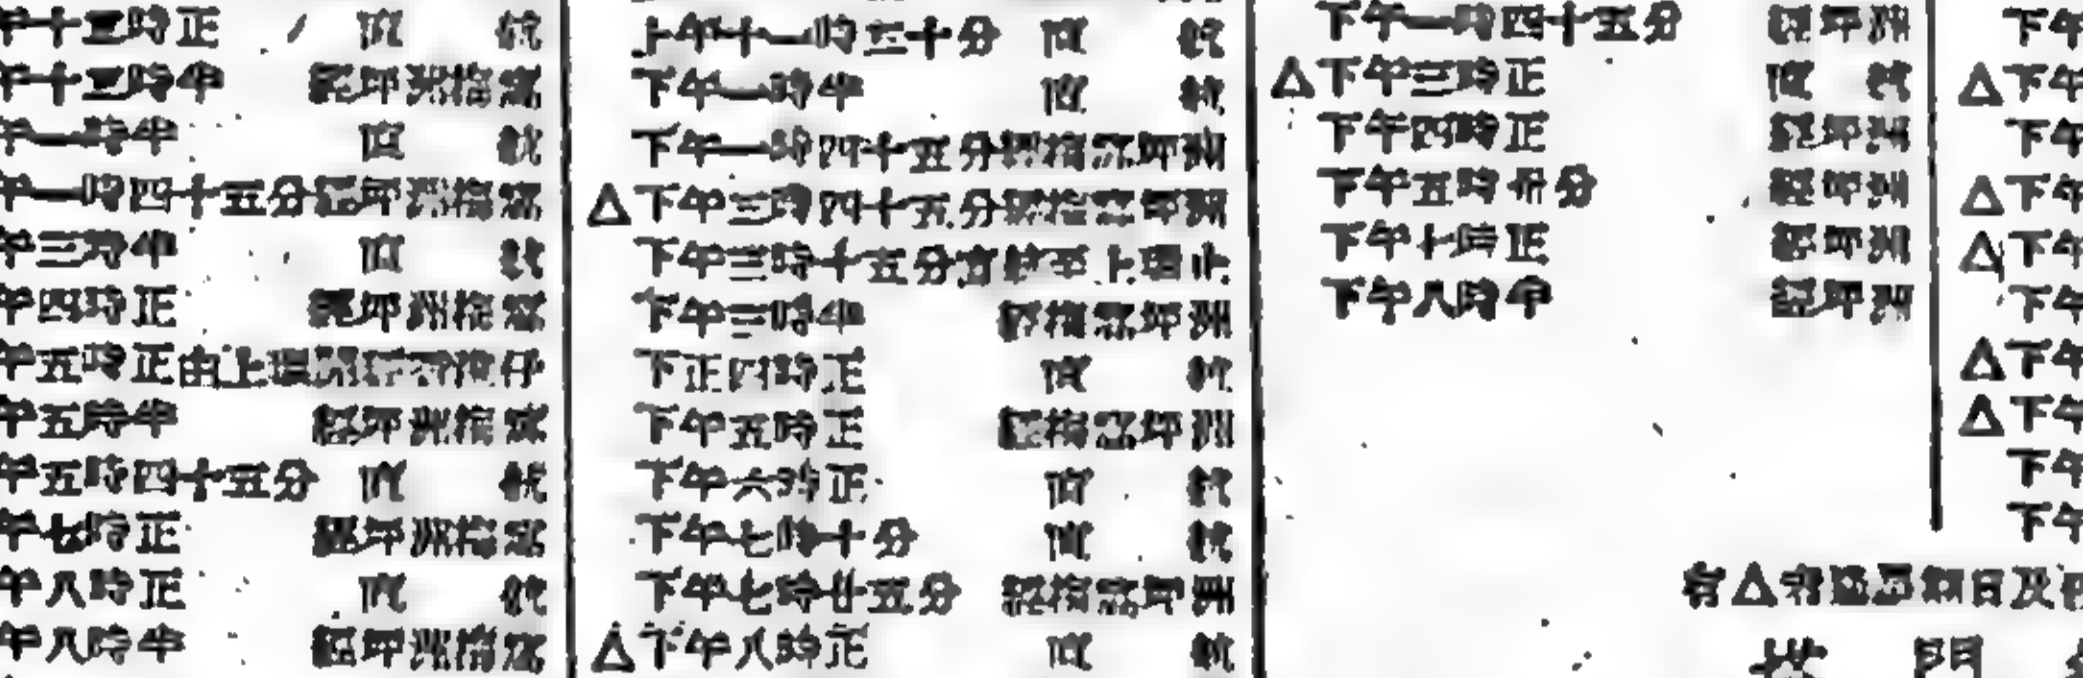 午十二時正 直航
午十二時半 經坪洲梅窩
午一時半 直航
午一時四十五分經坪洲梅窩
午三時半 直航
午四時正 經坪洲梅窩
午五時正由上環
午五時半 經坪洲梅窩
午五時四十五分 直航
午七時正 經坪洲梅窩
午八時正 直航
午八時半 經坪洲梅窩
上午十一時三十分 直航
下午一時半 直航
下午一時四十五分經梅窩坪洲
△下午三時四十五分經梅窩坪洲
下午三時十五分直航至上環止
下午三時半 經梅窩坪洲
下正四時正 直航
下午五時正 經梅窩坪洲
下午六時正 直航
下午七時十分 直航
下午七時廿五分 經梅窩坪洲
△下午八時正 直航
下午一時四十五分 經坪洲
△下午三時正 直航
下午四時正 經坪洲
下午五時卅分 經坪洲
下午十時正 經坪洲
下午八時半 經坪洲
下午
△下午
下午
△下午
△下午
下午
△下午
△下午
下午
下午
有△者星期日及
門